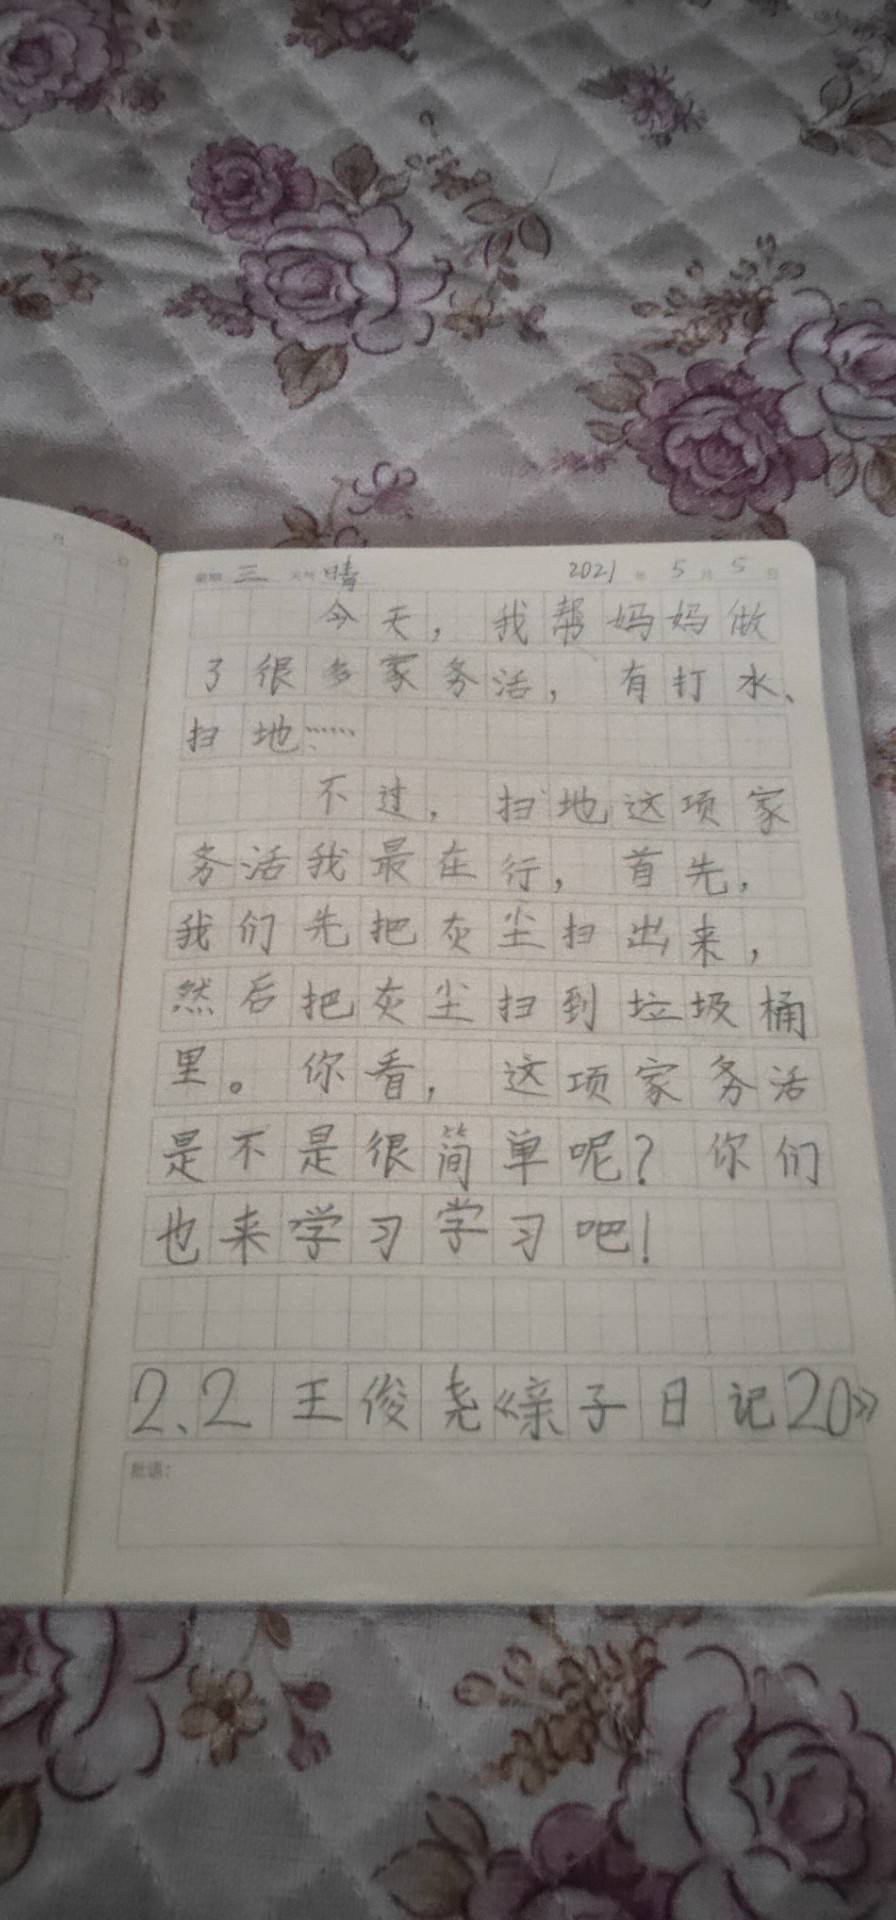 星期 三 天气 晴 2021 年 5 月 5 日
今天，我帮妈妈做
了很多家务活，有打水、
扫地……
不过，扫地这项家
务活我最在行，首先，
我们先把灰尘扫出来，
然后把灰尘扫到垃圾桶
里。你看，这项家务活
是不是很简单呢？你们
也来学习学习吧！
2、2 王俊尧《亲子日记20》
批语：